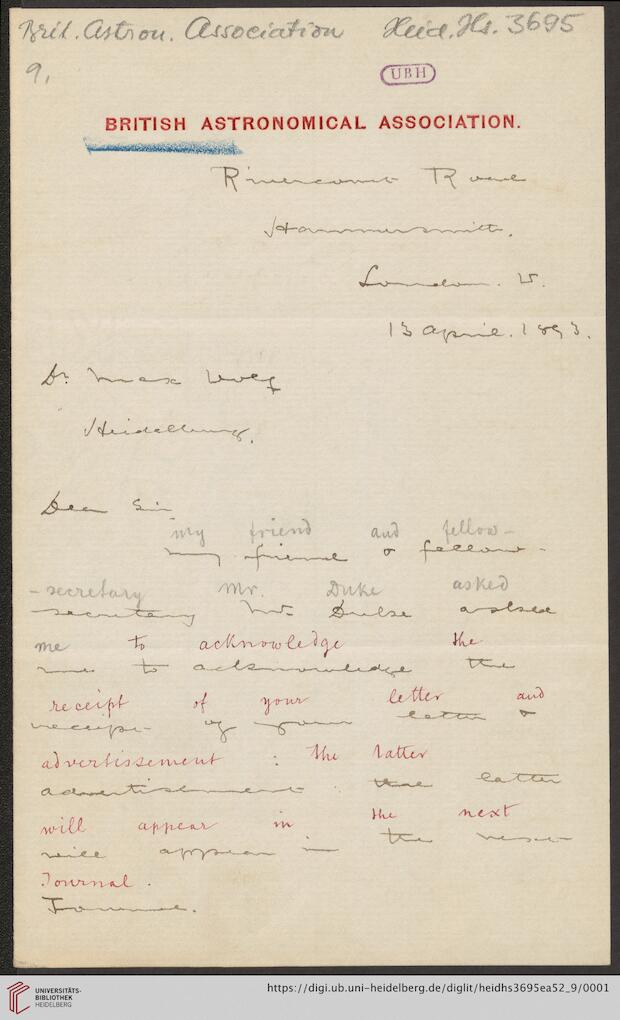 Brit. Astron. Association Heid. Hs. 3695
9,
UBH
BRITISH ASTRONOMICAL ASSOCIATION.
Rivercourt Road
Hammersmith.
London. W.
13 April. 1893.
Dr Max Wolf
Heidelburg.
Dear Sir
my friend and fellow-
my friend & fellow-
-secretary Mr. Duke asked
secretary Mr. Duke asked
me to acknowledge the
me to acknowledge the
receipt of your letter and
receipt of your letter &
advertisement : the latter
advertisement : the latter
will appear in the next
will appear in the next
Journal.
Journal.
UNIVERSITÄTS-
BIBLIOTHEK
HEIDELBERG
https://digi.ub.uni-heidelberg.de/diglit/heidhs3695ea52_9/0001